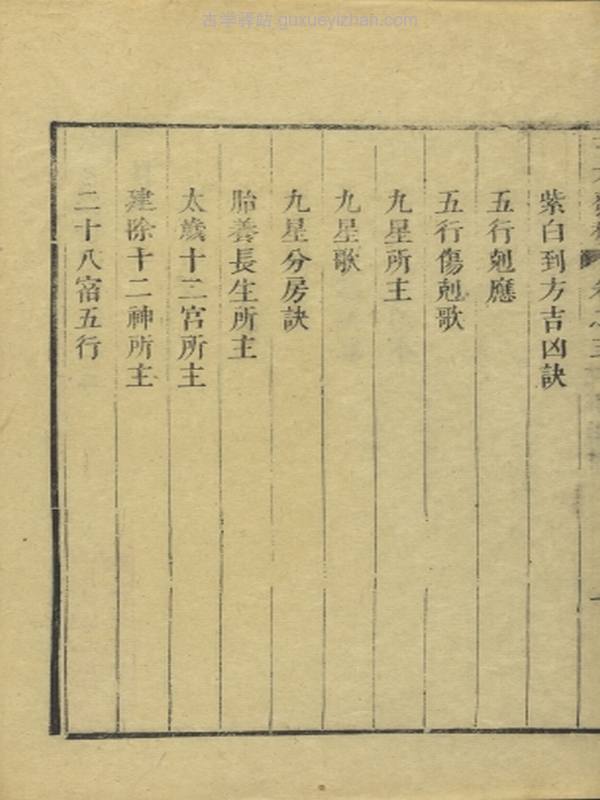 古学驿站 guxueyizhan.com
紫白到方吉凶訣
五行剋應
五行傷剋歌
九星所主
九星歌
九星分房訣
胎養長生所主
太歲十二宮所主
建除十二神所主
二十八宿五行